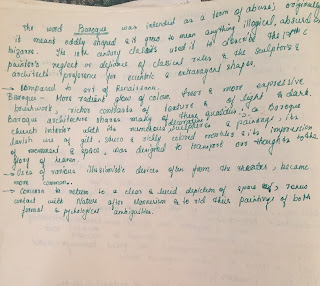 The word Baroque was intended as a term of abuse, originally
it meant oddly shaped & it grew to mean anything illogical, absurd &
bizarre. The 18th century classics used it to describe the 17th C
painter's neglect or defiance of classical rules & the sculptor's &
architect's preference for eccentric & extravagant shapes.
→ compared to art of Renaissance.
Baroque - More radient glow of colour, freer & more expressive
brushwork, richer contrasts of texture & of light & dark.
Baroque architecture shares many of these qualities; a Baroque
church interior with its numerous sculptures decorations, & paintings, its
lavish use of gilt, stucco & richly coloured marbles & its impression
of movement & space, was designed to transport our thoughts to the
glory of heaven.
→ Uses of various illusionistic devices often from the theater, became
more common.
→ Concern to return to a clear & lucid depiction of space, renew
contact with Nature after Mannerism & to rid their paintings of both
formal & pychological ambiguities.